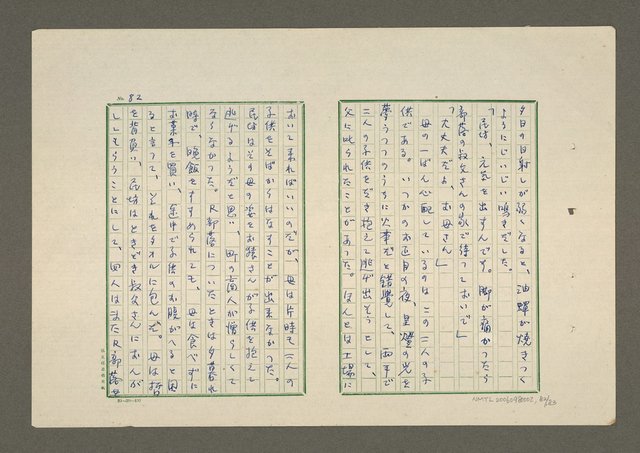 夕日の日射しが弱くなると、油蟬が焼きつく
ようにじいじい鳴きだした。
「民坊、元気を出すんです。脚が痛かつたら
部落の叔父さんの家で待つておいで」
「大丈夫だよ、お母さん」
母の一ばん心配しているのはこの二人の子
供である。いつかのお正月の夜、皇燈の光を
夢うつつのうちに火事だと錯覺して、両手で
二人の子供をだき抱えて逃げ出そうとして、
父に叱られたことがあつた。ほんとは工場に
No. 82
おいて来ればいいのだが、母は片時も二人の
子供をそばからはなすことが出来なかつた。
民坊はその母の姿をお猿さんが子供を抱えて
逃げるようだと思い、町の商人が憎らしくて
ならなかつた。R部落についたときは夕暮れ
時で、晩飯をすすめられても、母は食べずに
お菓子を買い、途中で子供のお腹がへると困
ると言つて、それをタオルに包んだ。母は哲
を背負い、民坊はときどき叔父さんにおんが
してもらうことにして、四人はまたR部落を
NMTL20060980002, 82/123